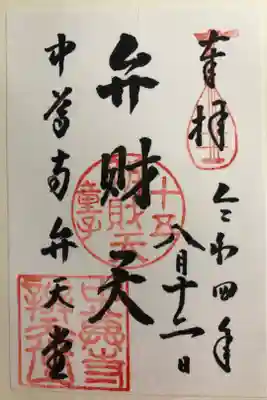 奉拝
令和四年
八月十二日
弁財天
十五
弁財天
童子
中尊寺弁天堂